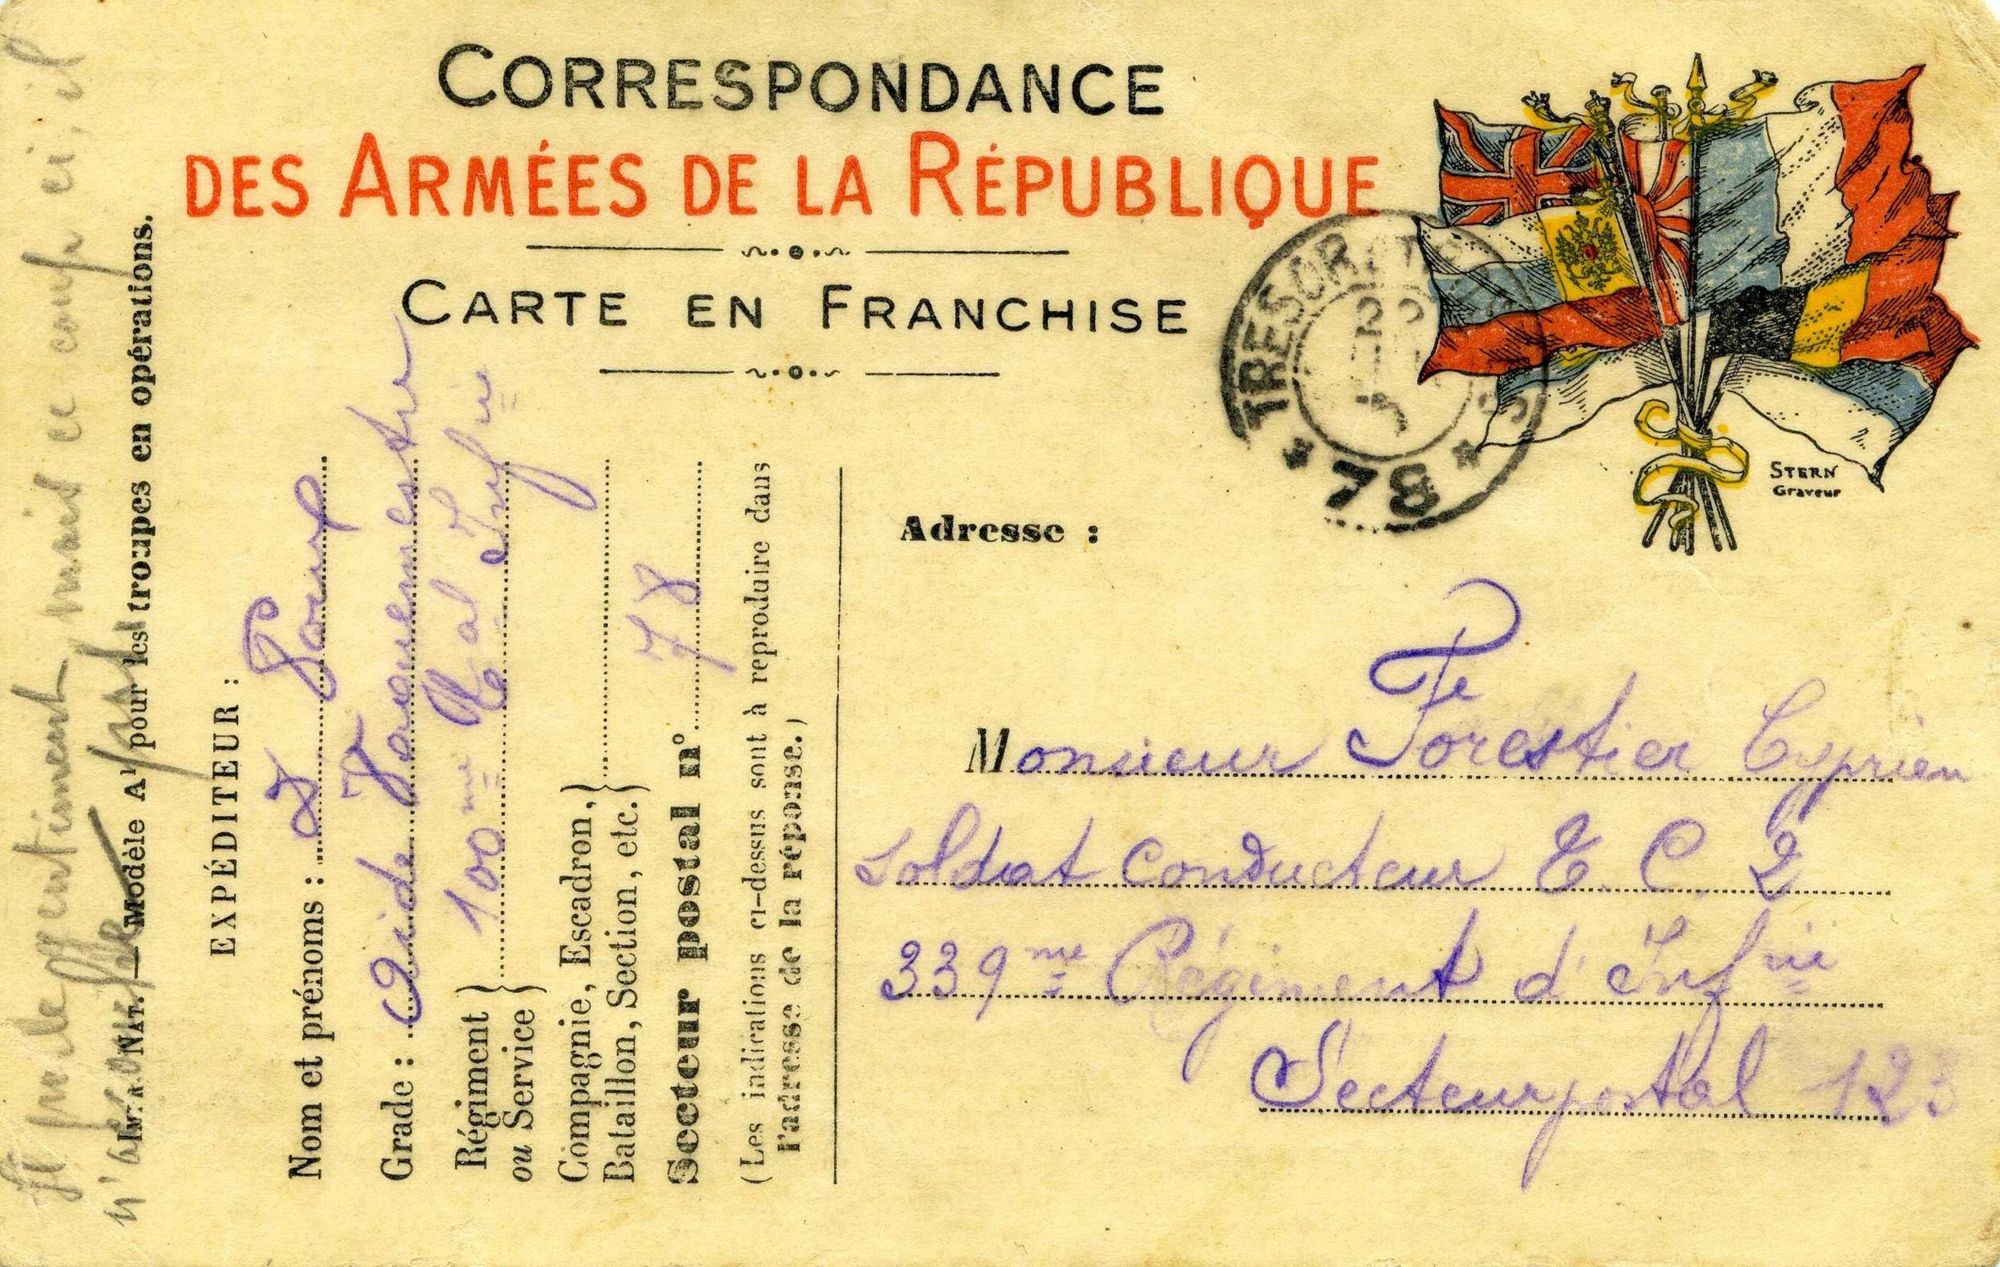 CORRESPONDANCE
DES ARMÉES DE LA RÉPUBLIQUE
CARTE EN FRANCHISE
TRESOR ET
22
* 78 *
STERN
Graveur
Adresse :
Monsieur Forestier Cyprien
Soldat Conducteur T. C. 2
339me Régiment d'Infrie
Secteur postal 123
Il parle sentiment mais ce coup ci, il
n'a
NAT. — Modèle A1 pour les troupes en opérations.
EXPÉDITEUR :
Nom et prénoms :
Grade : Aide Vaguemestre
Régiment
ou Service
100me R al Infie
Compagnie, Escadron,
Bataillon, Section, etc.
Secteur postal n° 78
(Les indications ci-dessus sont à reproduire dans
l'adresse de la réponse.)